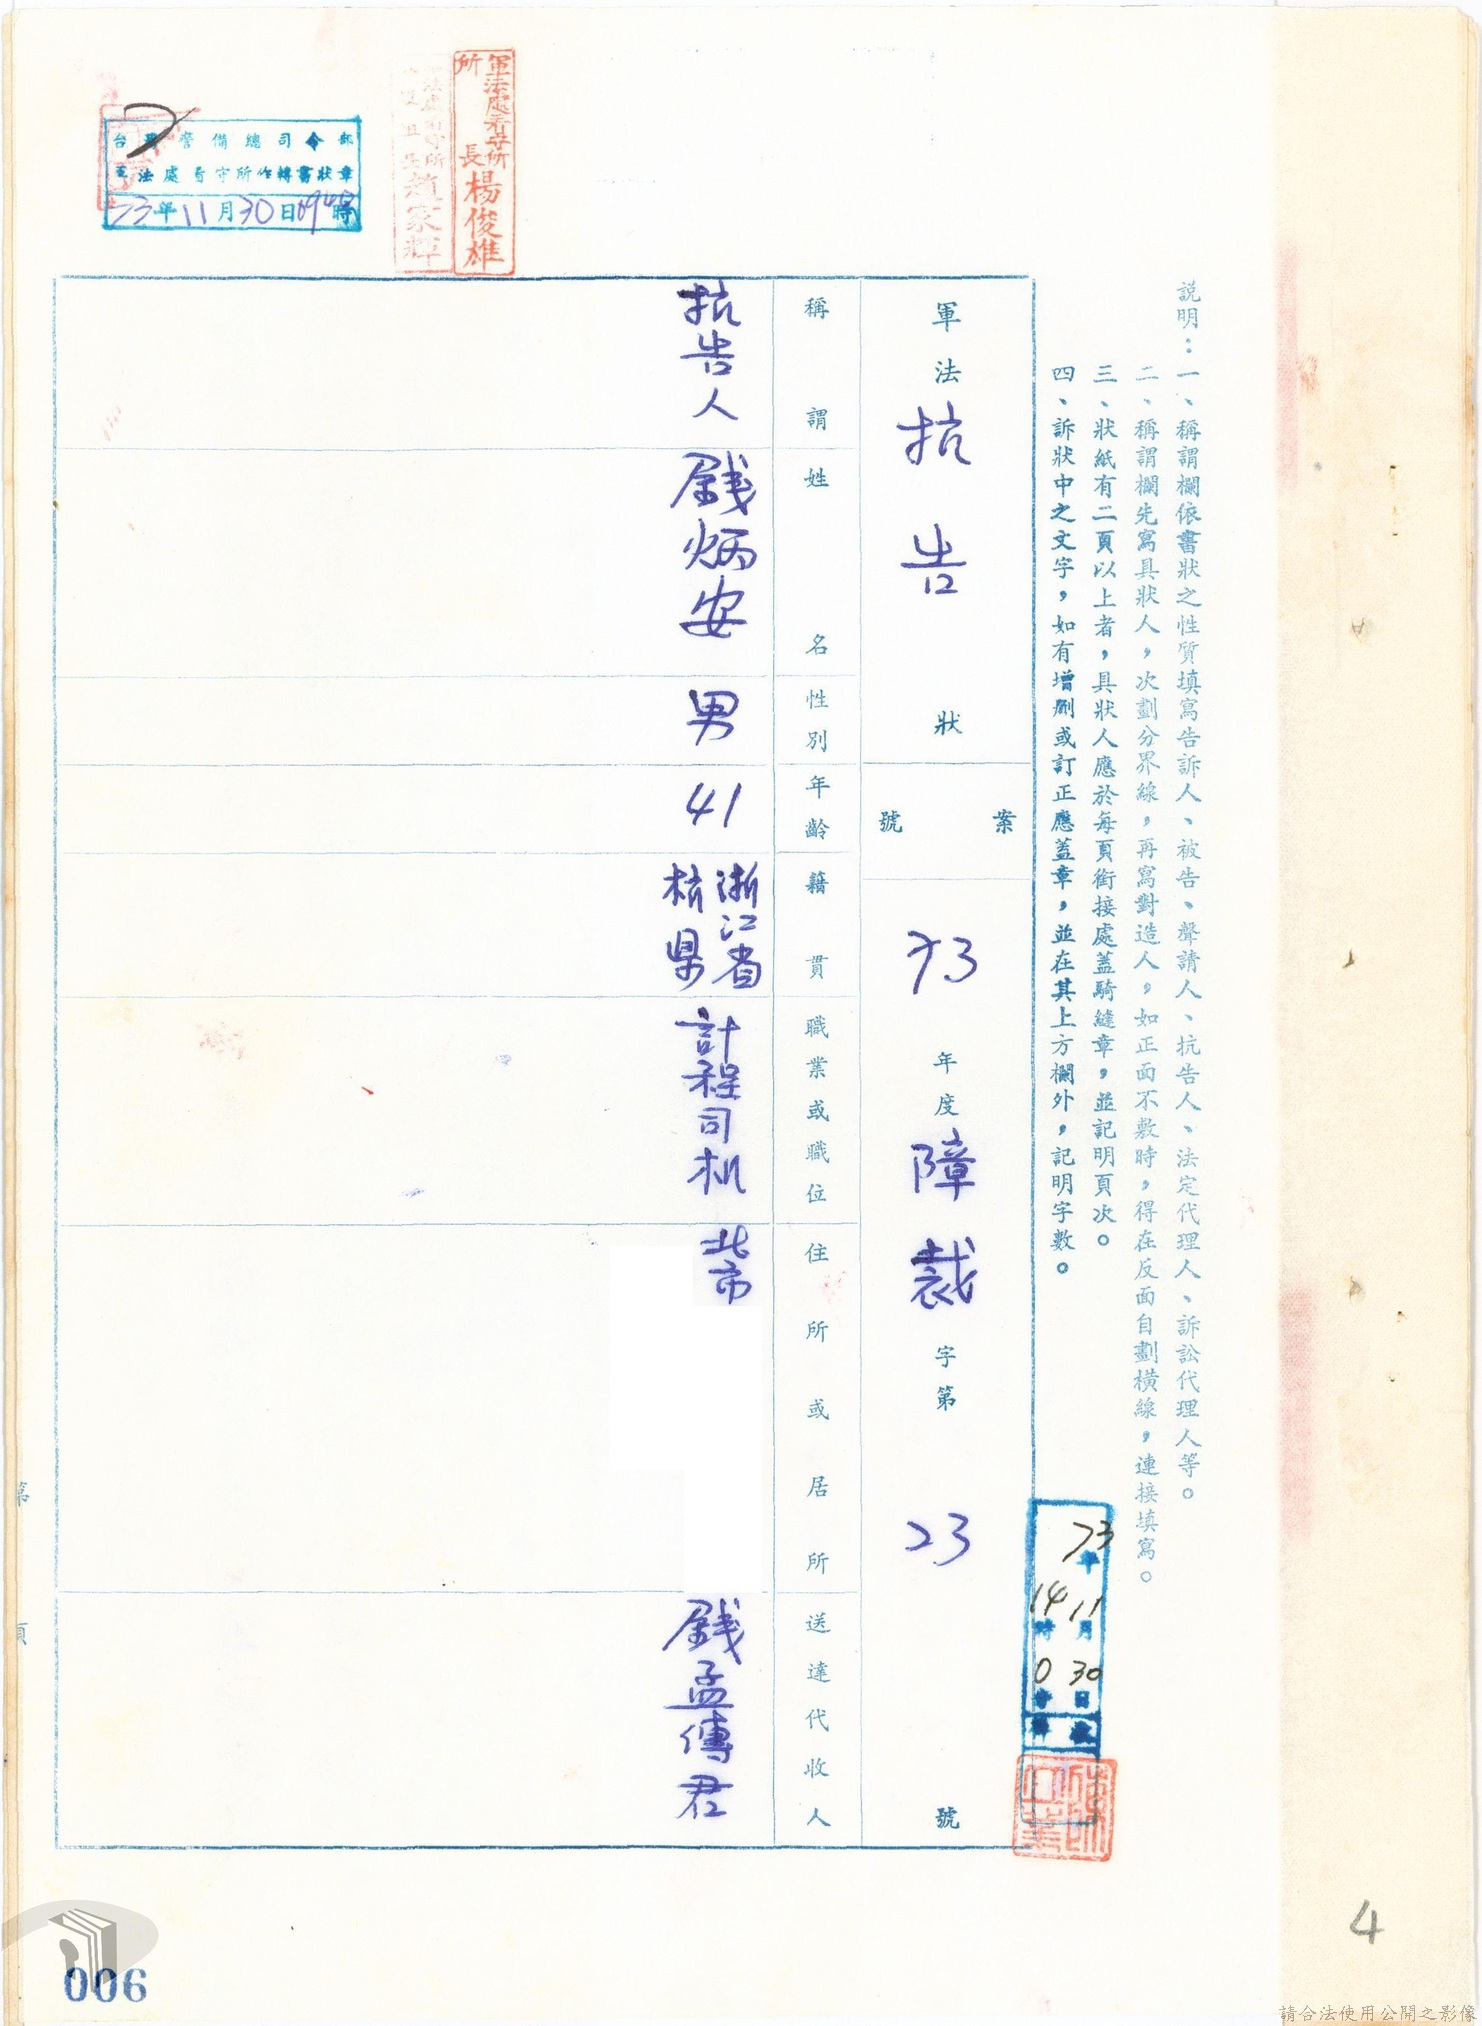 說明：一、稱謂欄依書狀之性質填寫告訴人、被告、聲請人、抗告人、法定代理人、訴訟代理人等。
二、稱謂欄先寫具狀人，次劃分界線，再寫對造人，如正面不敷時，得在反面自劃橫線，連接填寫。
三、狀紙有二頁以上者，具狀人應於每頁銜接處蓋騎縫章，並記明頁次。
四、訴狀中之文字，如有增刪或訂正應蓋章，並在其上方欄外，記明字數。
73年
11月
30日
14時
0
軍法抗告狀
案號
73年度障裁字第23號
稱謂
姓名
性別
年齡
籍貫
職業或職位
住所或居所
送達代收人
抗告人
錢炳安
男
41
浙江省
杭県
計程司机
北市
錢孟傳君
軍法處看守所
所長楊俊雄
趙家輝
台灣警備總司令部
軍法處看守所作轉書狀章
73年11月30日0945時
第
頁
006
4
請合法使用公開之影像